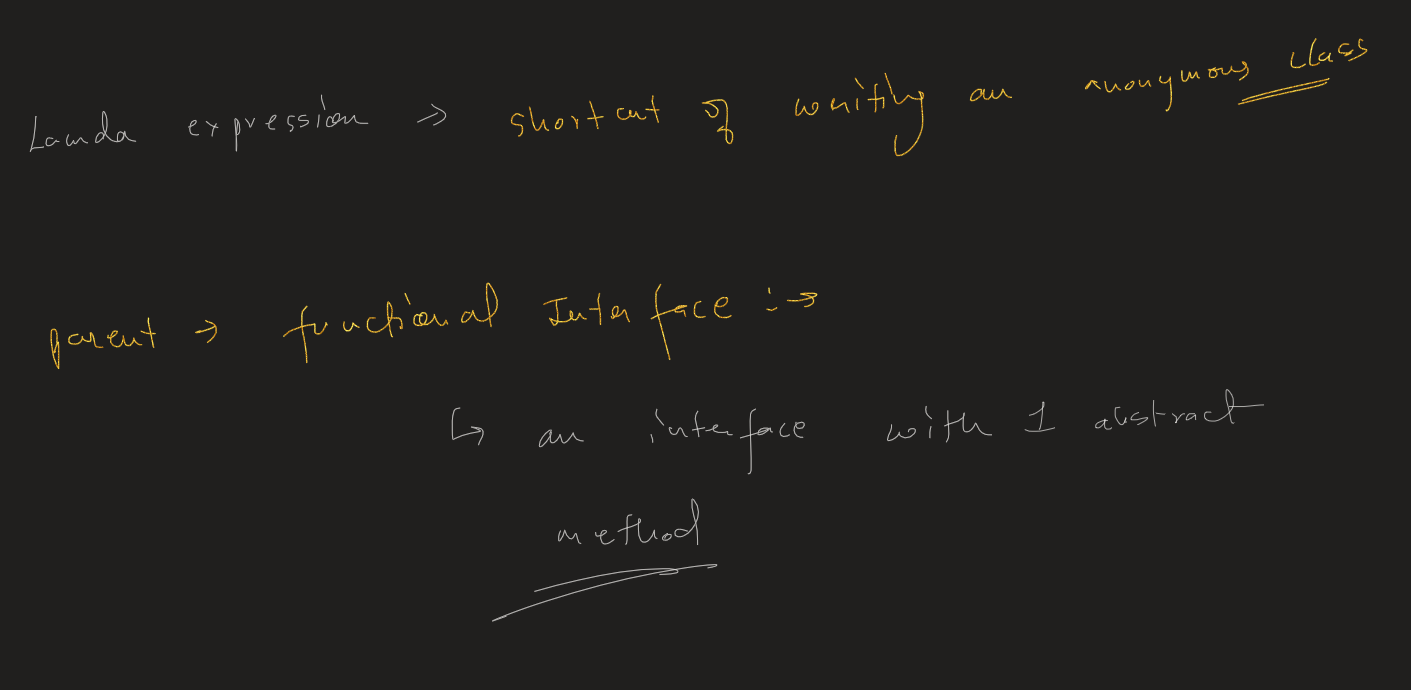 Lamda expression → shortcut of writing an anonymous class
parent → functional Interface :→
↳ an interface with 1 abstract
method